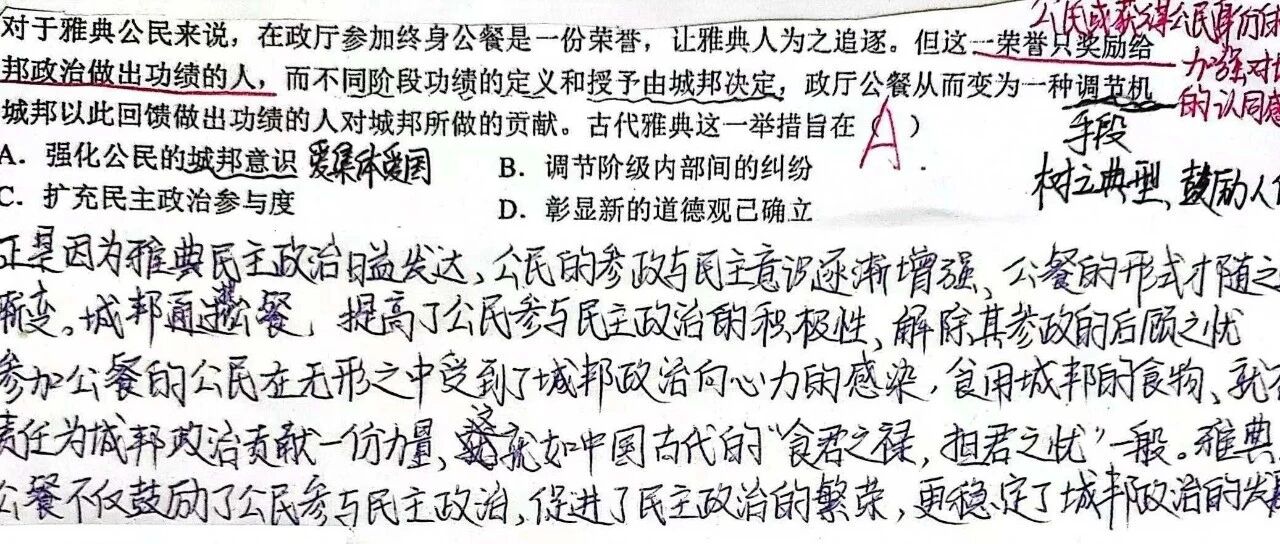 对于雅典公民来说，在政厅参加终身公餐是一份荣誉，让雅典人为之追逐。但这一荣誉只奖励给
邦政治做出功绩的人，而不同阶段功绩的定义和授予由城邦决定，政厅公餐从而变为一种调节机
城邦以此回馈做出功绩的人对城邦所做的贡献。古代雅典这一举措旨在（A）
A．强化公民的城邦意识 爱集体爱国
B．调节阶级内部间的纠纷
C．扩充民主政治参与度
D．彰显新的道德观已确立
公民或获得公民身份
加强对
的认同感
手段
树立典型、鼓励人
正是因为雅典民主政治日益发达、公民的参政与民主意识逐渐增强、公餐的形式才随之
渐变。城邦通过公餐，提高了公民参与民主政治的积极性、解除其参政的后顾之忧
参加公餐的公民在无形之中受到了城邦政治向心力的感染，食用城邦的食物、就
责任为城邦政治贡献一份力量，这就如中国古代的“食君之禄，担君之忧”一般。雅典
公餐不仅鼓励了公民参与民主政治，促进了民主政治的繁荣，更稳定了城邦政治的发展